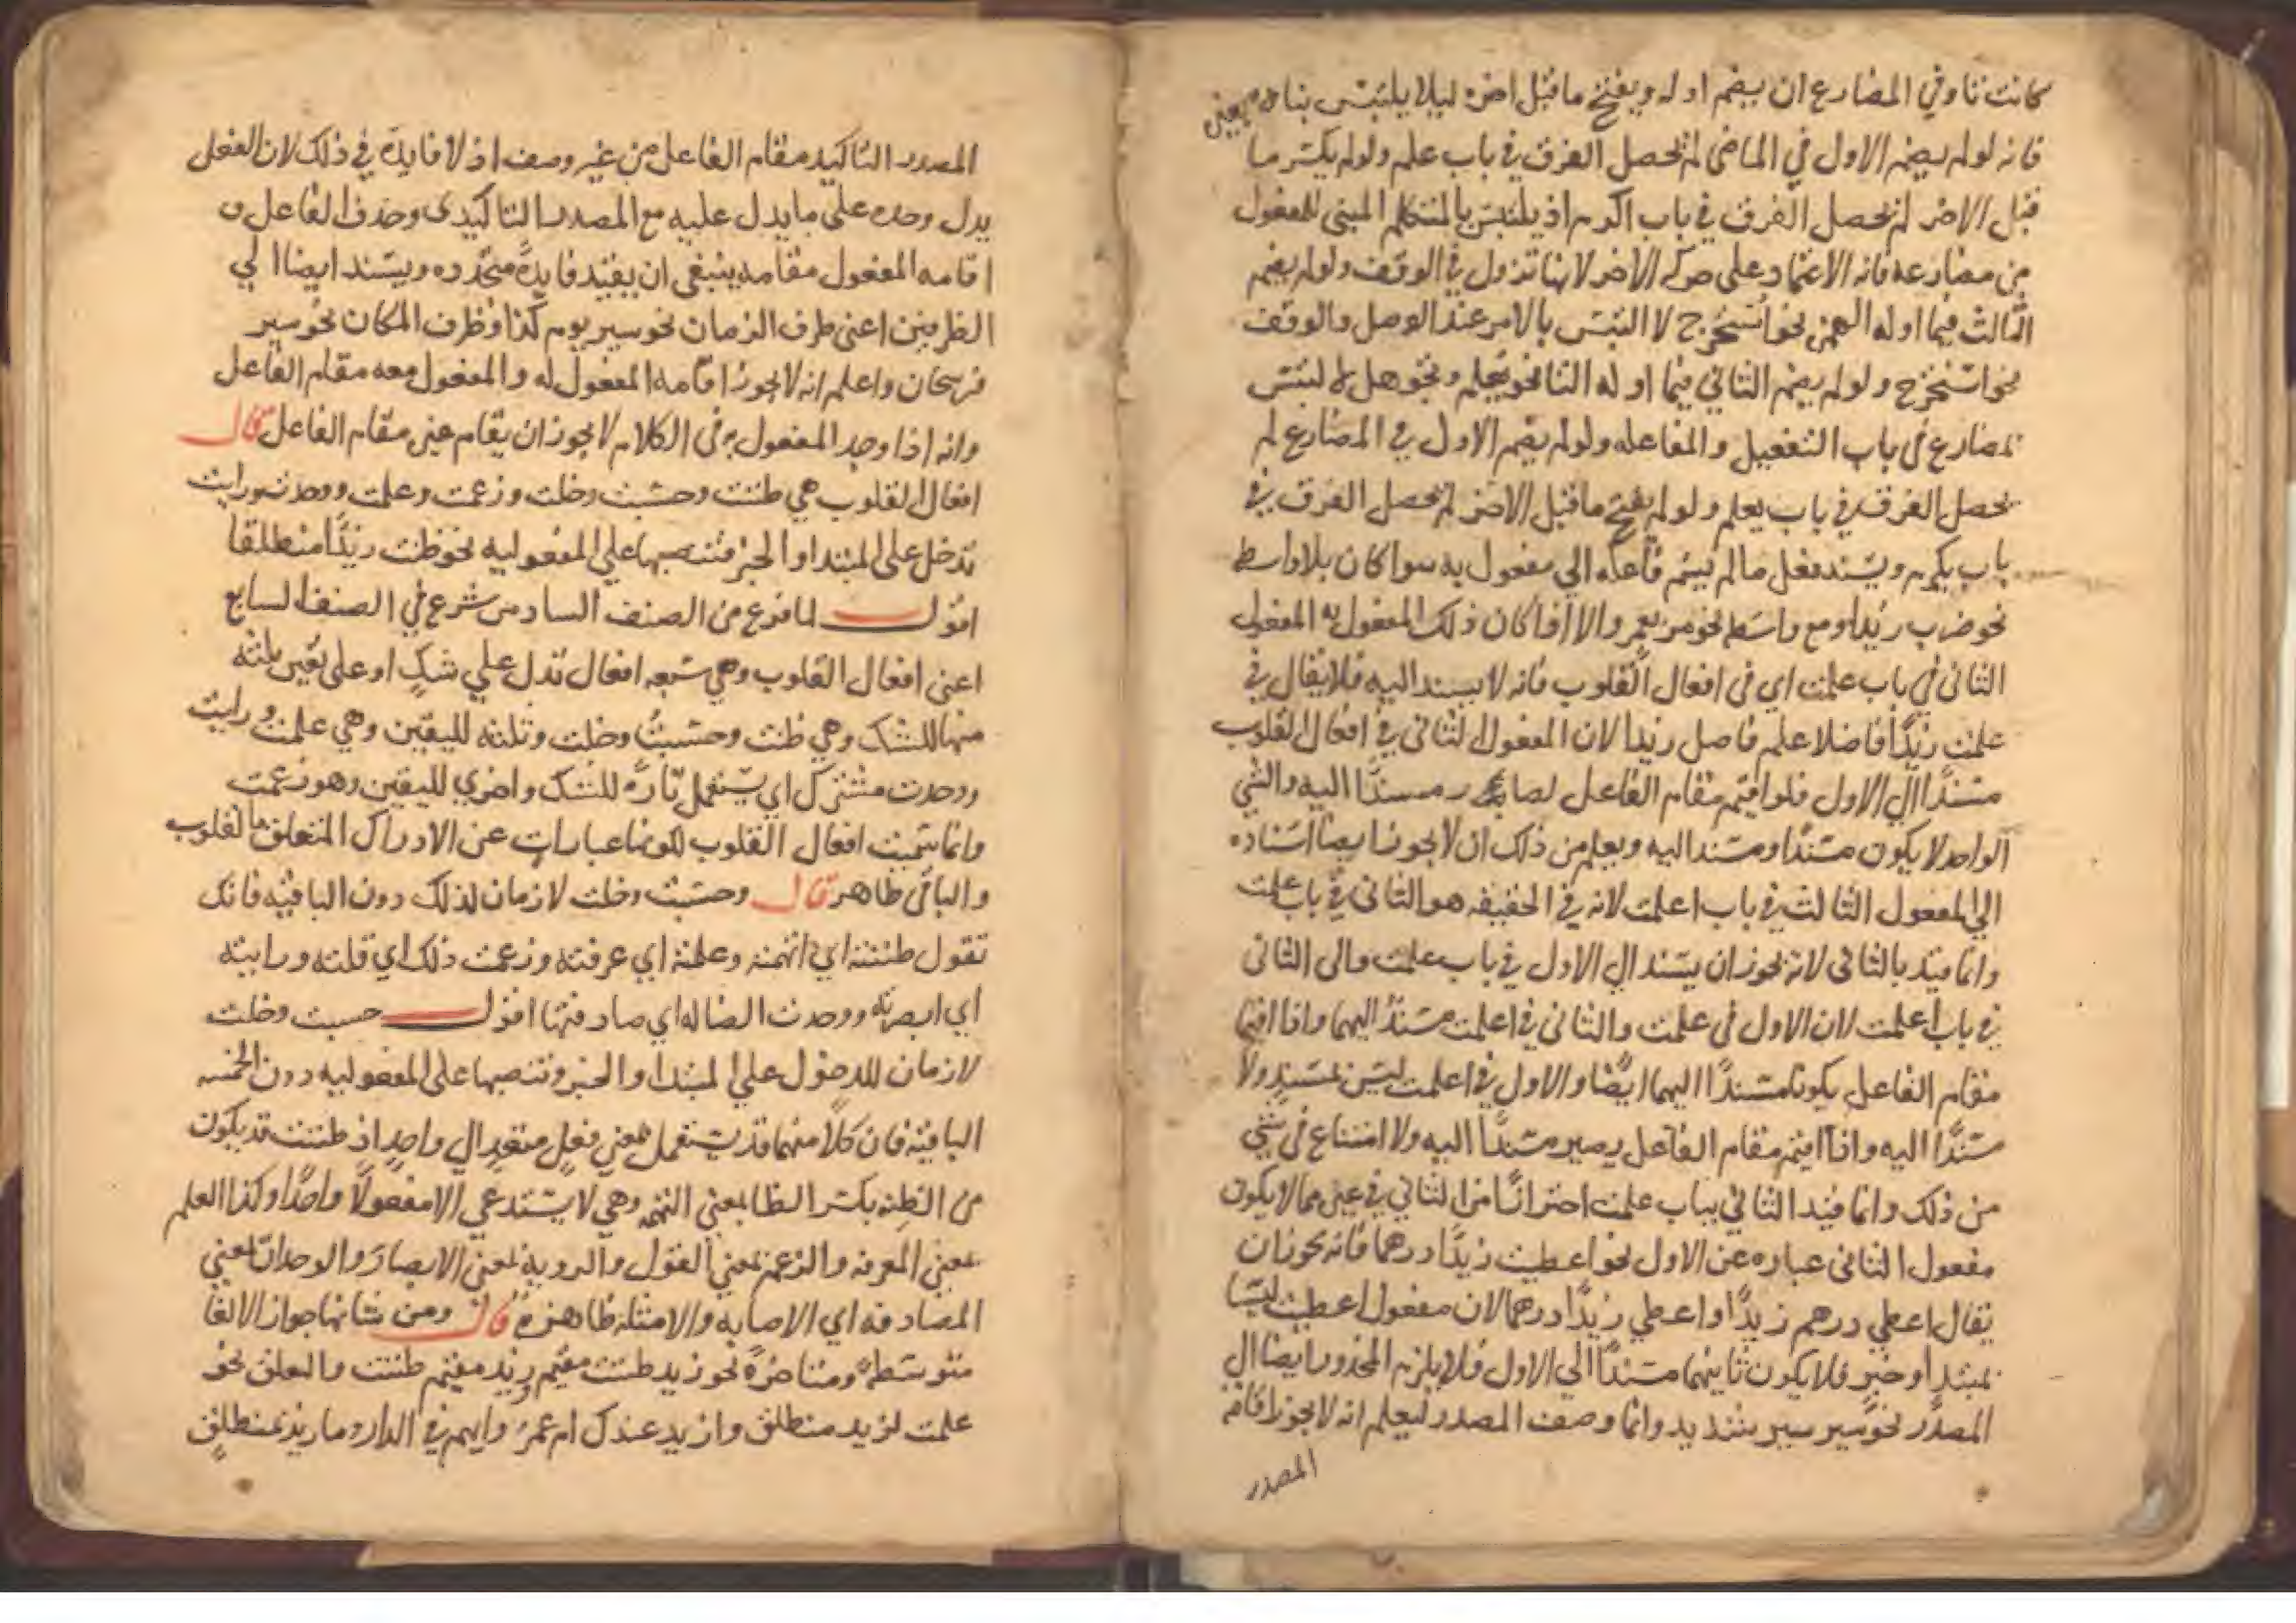 كانت تا وفي المضارع ان يضم اوله ويفتح ما قبل اخره ليلا يلتبس بناه يعني
فانه لو لم يضم الاول في الماضى لم يحصل الفرق في باب علم ولو لم يكسر ما
قبل الاخر لم يحصل الفرق في باب اكرم اذ يلتبس بالمتكلم المبنى للمفعول
من مضارعه فانه الاعتماد على حركه الاخر لانها تزول في الوقف ولو لم يضم
الثالث فيما اوله الهمزه نحو استخرج لا التبس بالامر عند الوصل والوقف
نحو استخرج ولو لم يضم الثاني فيما اوله التا نحو تعلم وتجوهل لالتبس
بمضارع في باب التفعيل والمفاعله ولو لم يضم الاول في المضارع لم
يحصل الفرق في باب يعلم ولو لم يفتح ما قبل الاخر لم يحصل الفرق في
باب يكرم ويسند فعل ما لم يسم فاعله الي مفعول به سوا كان بلا واسطه
نحو ضرب زيد او مع واسطه نحو مر بعمرو الا اذا كان ذلك المفعول به المفعول
الثانى في باب علمت اي في افعال القلوب فانه لا يسند اليه فلا يقال في
علمت زيدًا فاضلا علم فاضل زيدا لان المفعول الثانى في افعال القلوب
مسندًا الي الاول فلو اقيم مقام الفاعل لصار مسندًا اليه والشي
الواحد لا يكون مسندًا ومسندا اليه ويعلم من ذلك ان لا يجوز ايضا اسناده
الي المفعول الثالث في باب اعلمت لانه في الحقيقه هو الثانى في باب علمت
وانما قيد بالثانى لانه يجوز ان يسند الي الاول في باب علمت والى الثانى
في باب اعلمت لان الاول في علمت والثانى في اعلمت مسندٌ اليهما واذا اقيما
مقام الفاعل يكونا مسندًا اليهما ايضًا والاول في اعلمت ليس بمسندٍ ولا
مسندًا اليه واذا اقيم مقام الفاعل يصير مسندًا اليه ولا امتناع في شي
من ذلك وانما قيد الثاني بباب علمت احترازًا من الثاني في غيره مما لا يكون
مفعول الثانى عباره عن الاول نحو اعطيت زيدًا درهما فانه يجوز ان
يقال اعطي درهم زيدًا او اعطي زيدًا درهما لان مفعول اعطيت ليسا
بمبتدا وخبر فلا يكون ثانيهما مسندًا الي الاول فلا يلزم المحذور ايضا الي
المصدر نحو سير سير شديد وانما وصف المصدر ليعلم انه لا يجوز اقامة
المصدر
المصدر التاكيد مقام الفاعل من غير وصف اذ لا فايدة في ذلك لان الفعل
يدل وحده على ما يدل عليه مع المصدر التاكيدى وحذف الفاعل و
اقامه المفعول مقامه ينبغى ان يفيد فايدةً متجدده ويسند ايضا الي
الظرفين اعنى ظرف الزمان نحو سير يوم كذا وظرف المكان نحو سير
فرسخان واعلم انه لا يجوز اقامه المفعول له والمفعول معه مقام الفاعل
وانه اذا وجد المفعول به في الكلام لا يجوز ان يقام غيره مقام الفاعل قال
افعال القلوب هي ظننت وحسبت وخلت وزعمت وعلمت ووجدت ورايت
تدخل على المبتدا والخبر فتنصبهما على المفعوليه نحو ظننت زيدًا منطلقا
اقول لما فرغ من الصنف السادس شرع في الصنف السابع
اعنى افعال القلوب وهي سبعه افعال تدل علي شكٍ او على يقين ثلثه
منها للشك وهي ظننت وحسبت وخلت وثلثه لليقين وهي علمت ورايت
ووجدت مشترك اي يستعمل تارةً للشك واخري لليقين وهو زعمت
وانما سميت افعال القلوب لكونها عبارات عن الادراك المتعلق بالقلوب
والباقى ظاهر قال وحسبت وخلت لازمان لذلك دون الباقيه فانك
تقول ظننته اي اتهمته وعلمته اي عرفته وزعمت ذلك اي قلته ورايته
اي ابصرته ووجدت الضاله اي صادفتها اقول حسبت وخلت
لازمان للدخول علي المبتدا والخبر وتنصبهما على المفعوليه دون الخمسه
الباقيه فان كلًا منهما قد يستعمل بمعنى فعلٍ متعدٍ الي واحد اذ ظننت قد يكون
من الظنه بكسر الظا بمعنى التهمه وهي لا يستدعي الا مفعولًا واحدًا وكذا العلم
بمعنى المعرفه والزعم بمعنى القول والروية بمعنى الابصار والوجدان بمعنى
المصادفه اي الاصابه والامثله ظاهرة قال ومن شانها جواز الالغا
متوسطة ومتاخرةً نحو زيد ظننت مقيم وزيد مقيم ظننت والتعليق نحو
علمت لزيد منطلق وازيد عندك ام عمرو وايهم في الدار وما زيد بمنطلقٍ